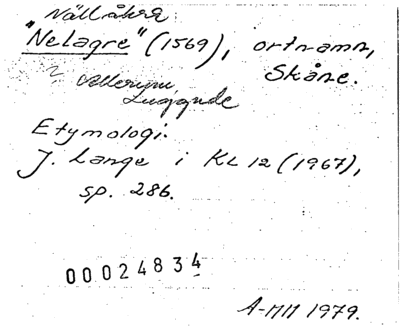 Nällåkra
"Nelagre" (1569), ortnamn,
Skåne.
? Allerum,
Luggude
Etymologi:
J. Lange i KL 12 (1967),
sp. 286.
00024834
A-MM 1979.